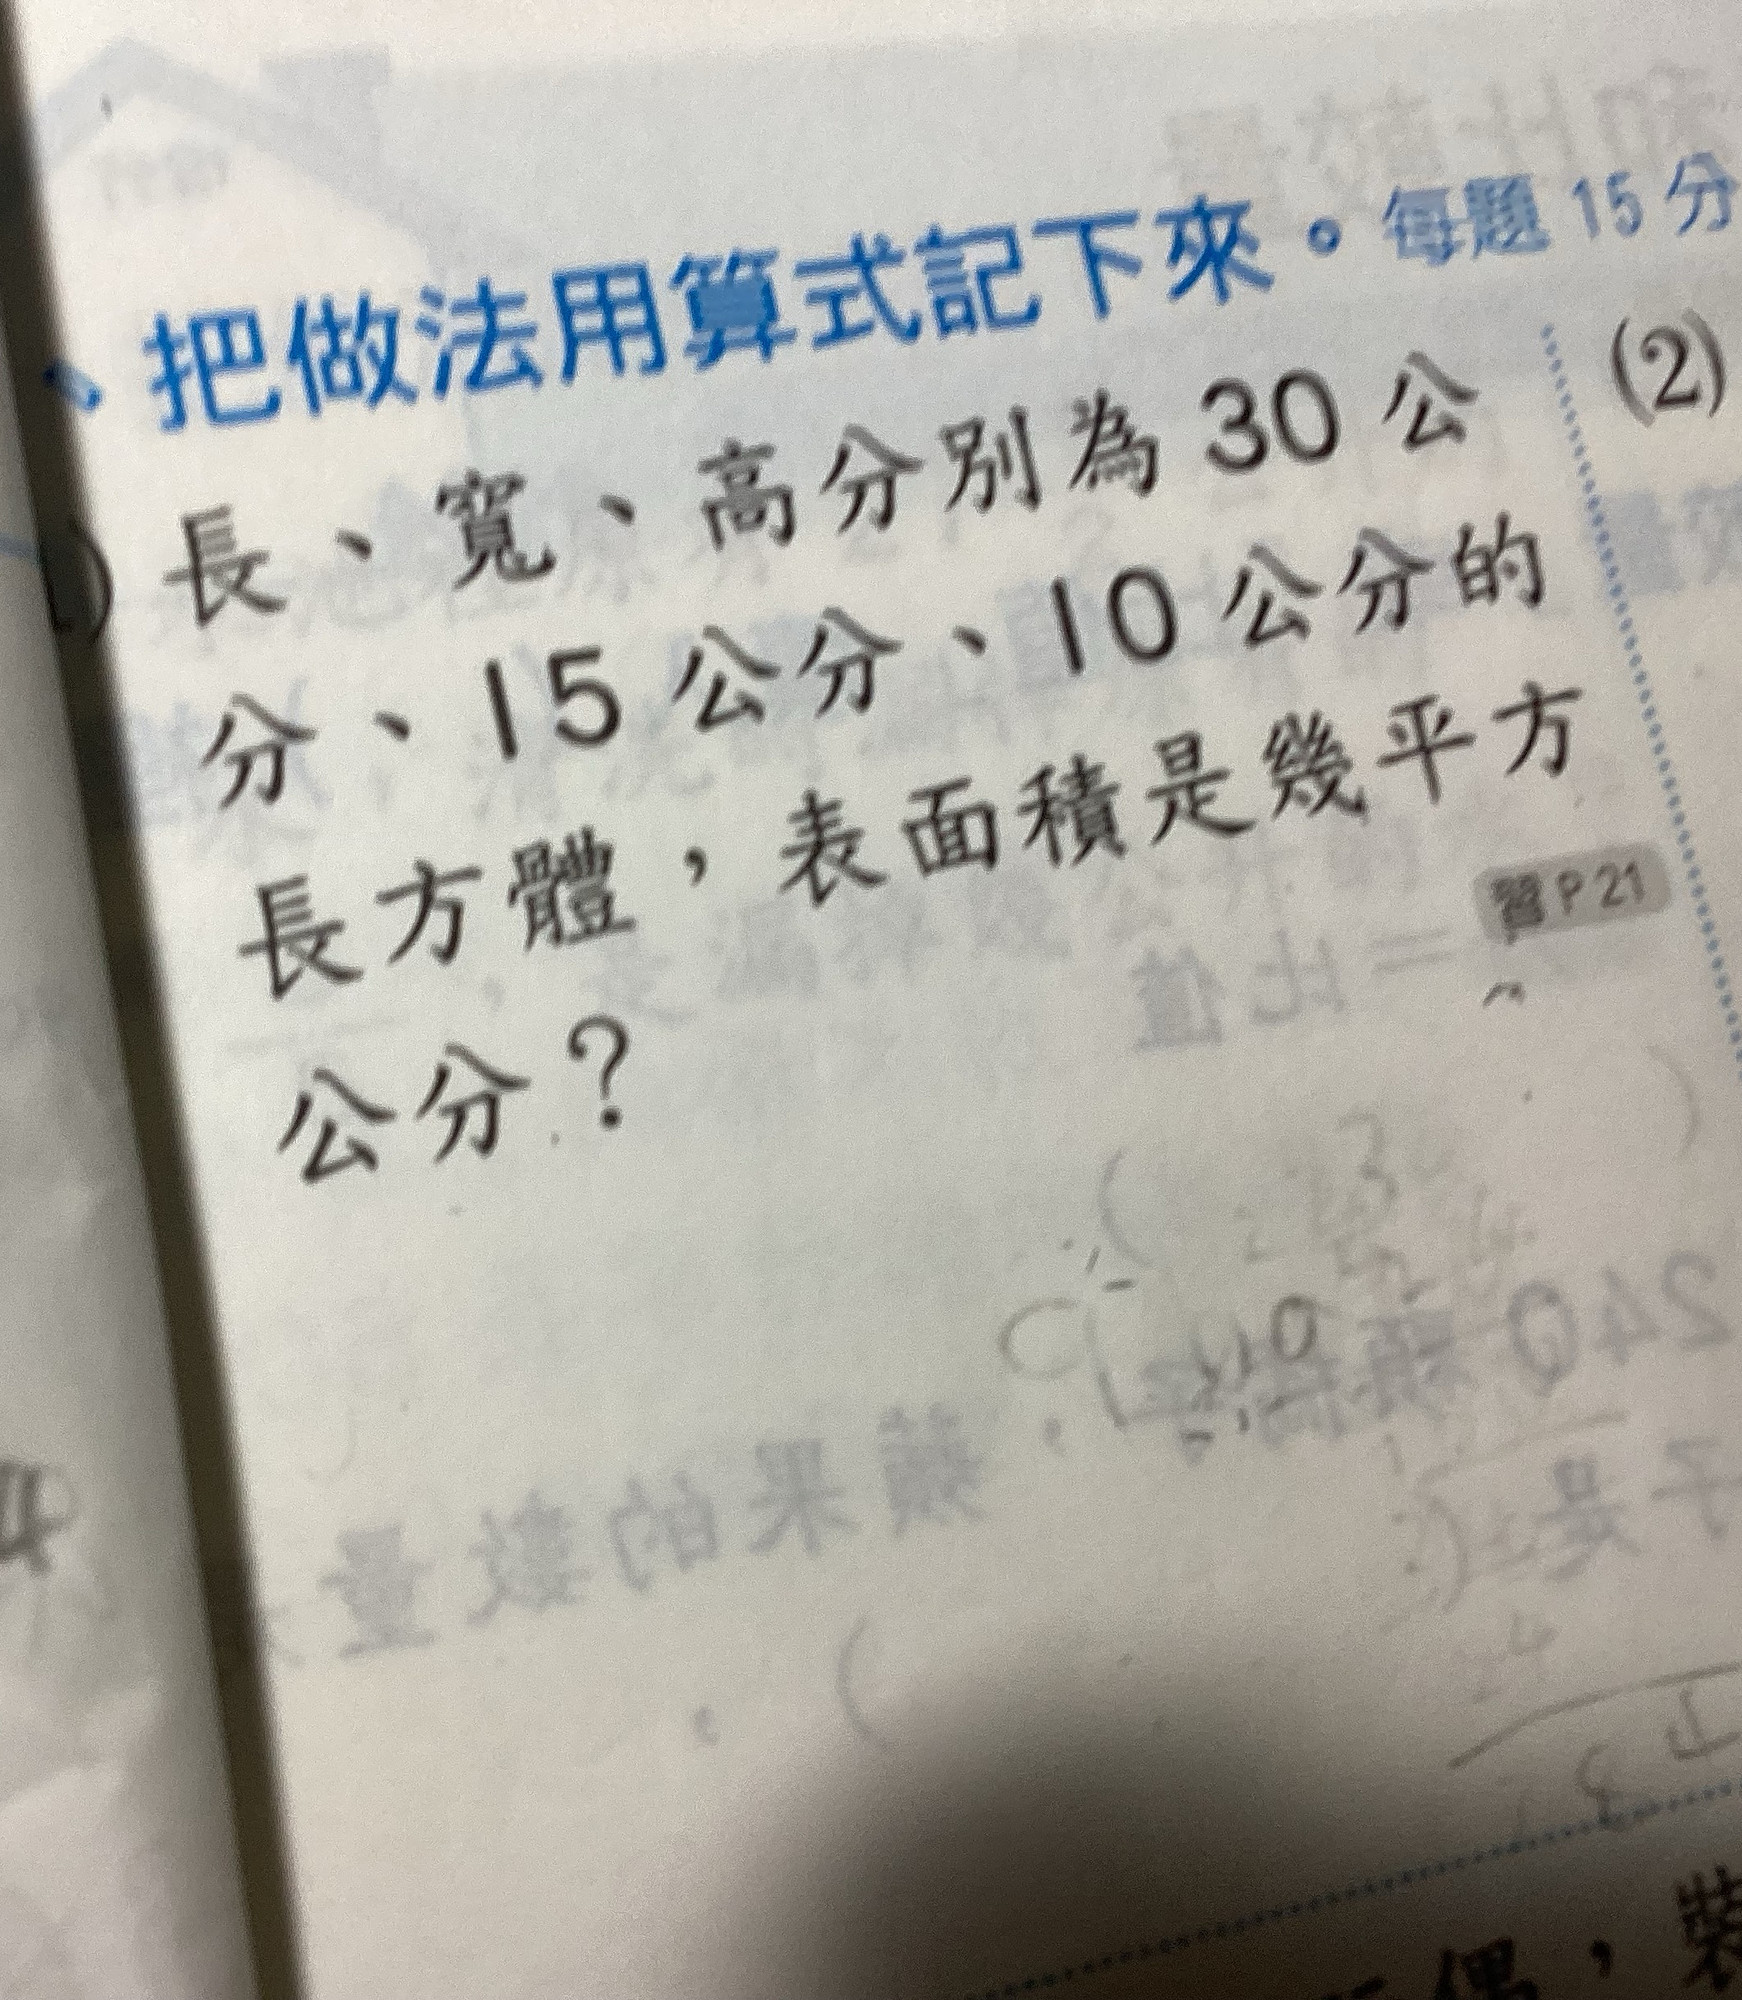 、把做法用算式記下來。每題 15 分
長、寬、高分別為 30 公
分、15 公分、10 公分的
長方體，表面積是幾平方
公分？
習P21
(2)
4
偶，裝